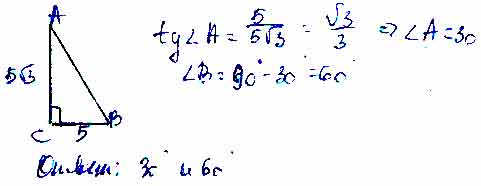 A
5√3
C
5
B
tg∠A = 5/5√3 = √3/3 ⇒ ∠A = 30
∠B = 90° - 30° = 60°
Ответ: 30° и 60°